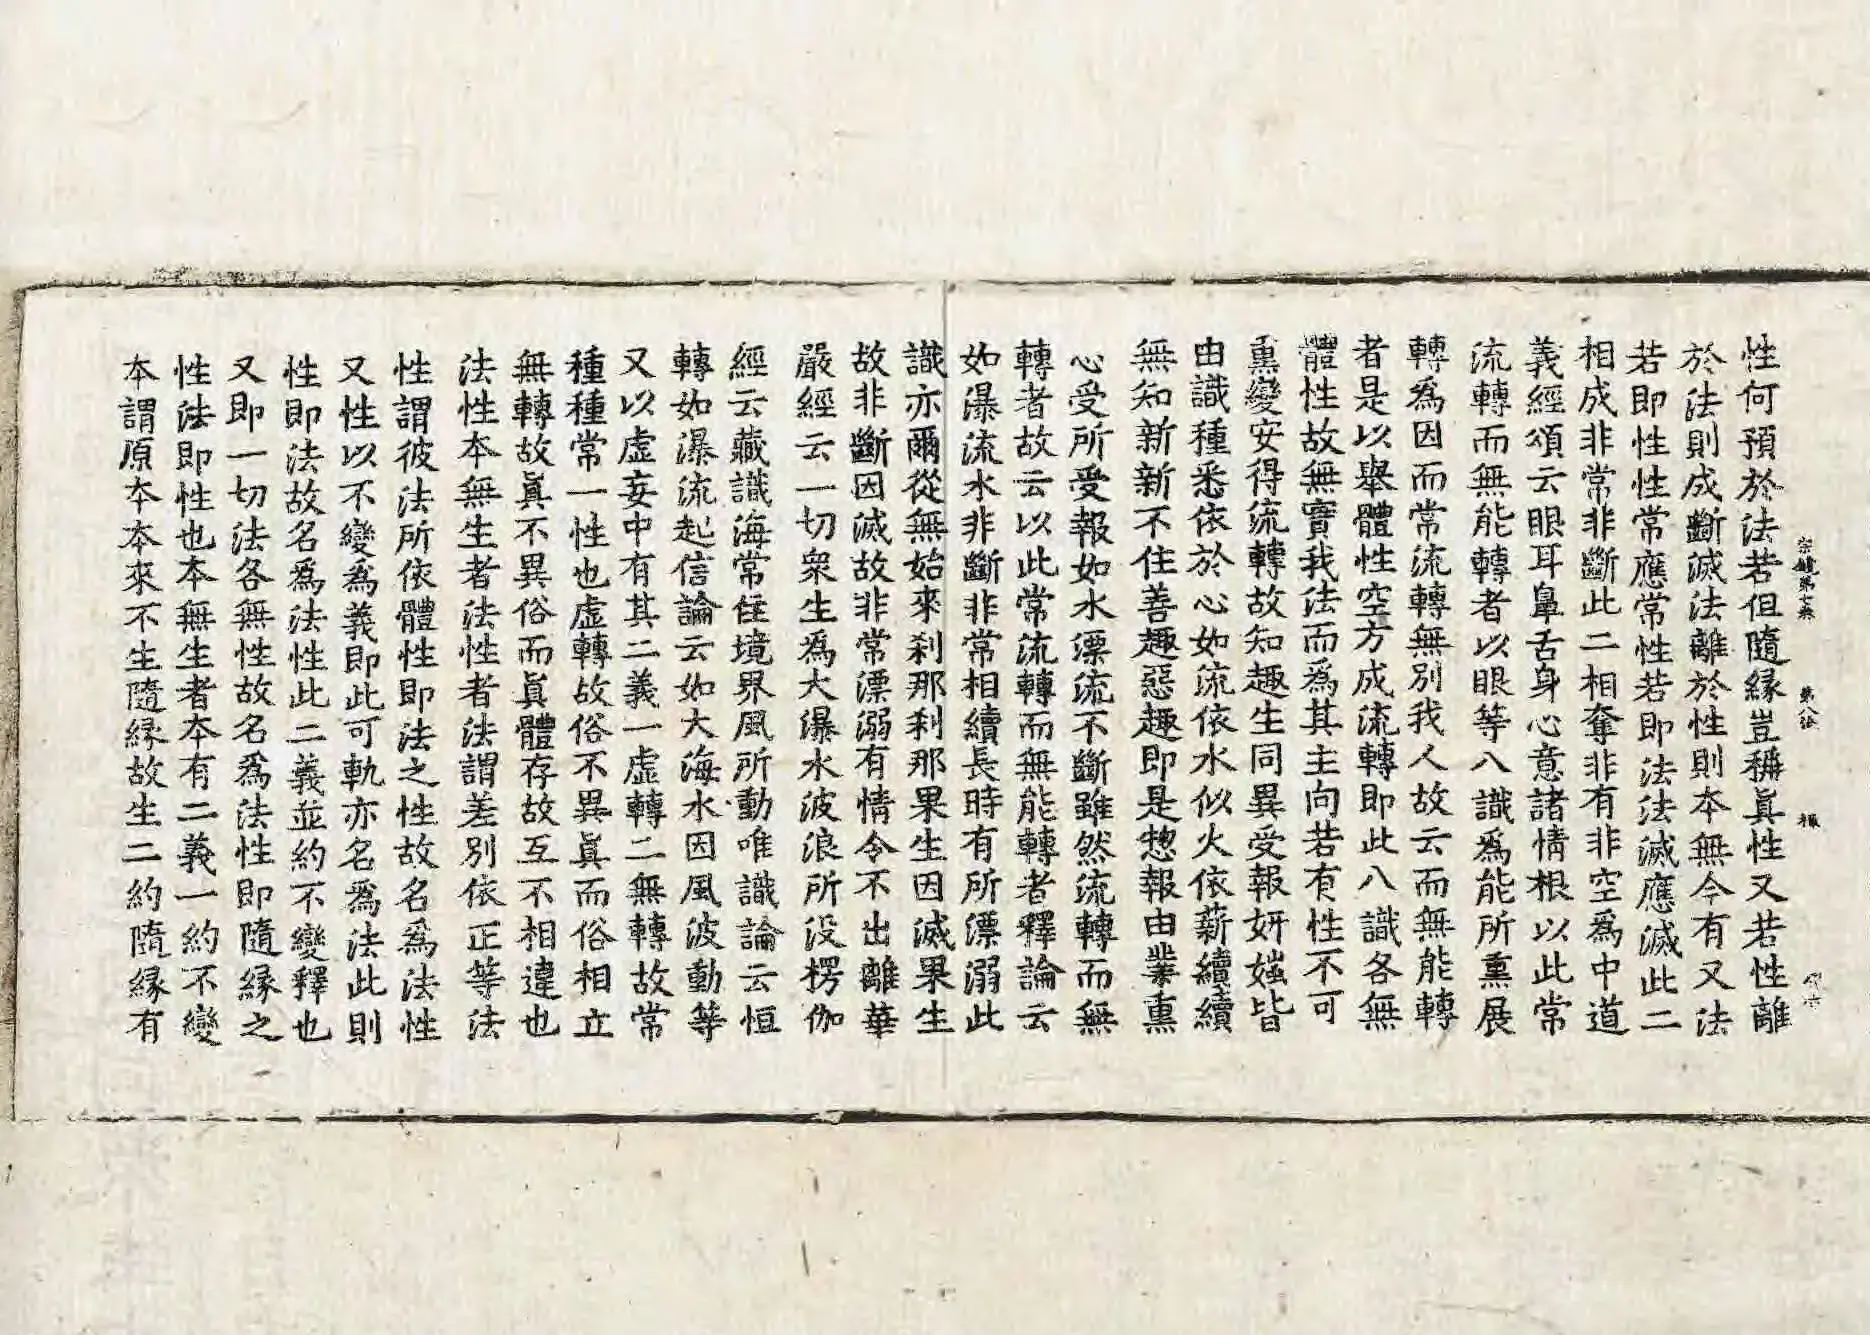 性何預於法若但隨緣豈稱眞性又若性離
於法則成斷滅法離於性則本無今有又法
若即性性常應常性若即法法滅應滅此二
相成非常非斷此二相奪非有非空為中道
義經頌云眼耳鼻舌身心意諸情根以此常
流轉而無能轉者以眼等八識爲能所熏展
轉爲因而常流轉無別我人故云而無能轉
者是以舉體性空方成流轉即此八識各無
體性故無實我法而爲其主向若有性不可
熏變安得流轉故知趣生同異受報妍媸皆
由識種悉依於心如流依水似火依薪續續
無知新新不住善趣惡趣即是惣報由業熏
心受所受報如水漂流不斷雖然流轉而無
轉者故云以此常流轉而無能轉者釋論云
如瀑流水非斷非常相續長時有所漂溺此
識亦爾從無始來刹那刹那果生因滅果生
故非斷因滅故非常漂溺有情令不出離華
嚴經云一切衆生爲大瀑水波浪所没楞伽
經云藏識海常住境界風所動唯識論云恒
轉如瀑流起信論云如大海水因風波動等
又以虛妄中有其二義一虛轉二無轉故常
種種常一性也虛轉故俗不異眞而俗相立
無轉故眞不異俗而眞體存故互不相違也
法性本無生者法性者法謂差別依正等法
性謂彼法所依體性即法之性故名爲法性
又性以不變爲義即此可軌亦名爲法此則
性即法故名爲法性此二義並約不變釋也
又即一切法各無性故名爲法性即隨緣之
性法即性也本無生者本有二義一約不變
本謂原本本來不生隨緣故生二約隨緣有
宗鏡第七卷 第八張 振